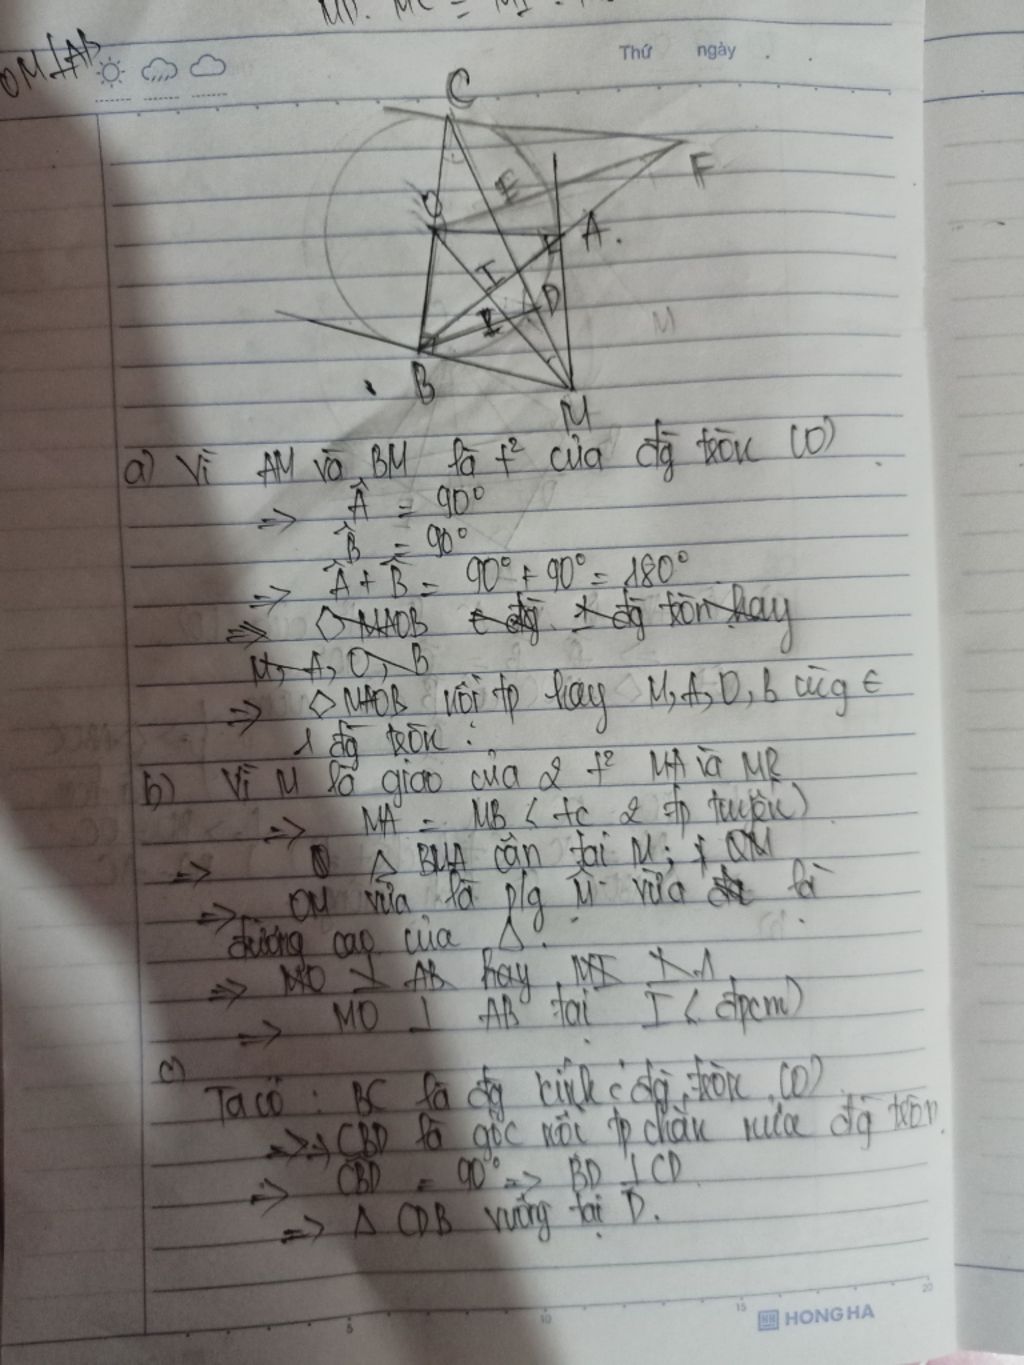 MD. MC = MI.
OM ⊥ AB
Thứ ngày
C
F
E
O
A.
I
D
M
B
M
a) Vì AM và BM là t² của đg tròn (O)
=> Â = 90°
B̂ = 90°
=> Â + B̂ = 90° + 90° = 180°
=> ◇ MAOB đg tròn hay
M, A, O, B
=> ◇ MAOB nội tp hay M, A, O, B cùg ∈
1 đg tròn.
b) Vì M là giao của 2 t² MA và MB
=> MA = MB ( tc 2 tp tuyến)
=> Δ BMA cân tại M; OM
=> OM vừa là p/g M̂ vừa là
đường cao của Δ.
=> MO ⊥ AB hay MI
=> MO ⊥ AB tại I ( đpcm)
c)
Ta có : BC là đg kính c đg tròn (O)
=> CBD là góc nội tp chắn nửa đg tròn
=> CBD = 90° => BD ⊥ CD
=> Δ CDB vuông tại D.
5 10 15 20
HONG HA